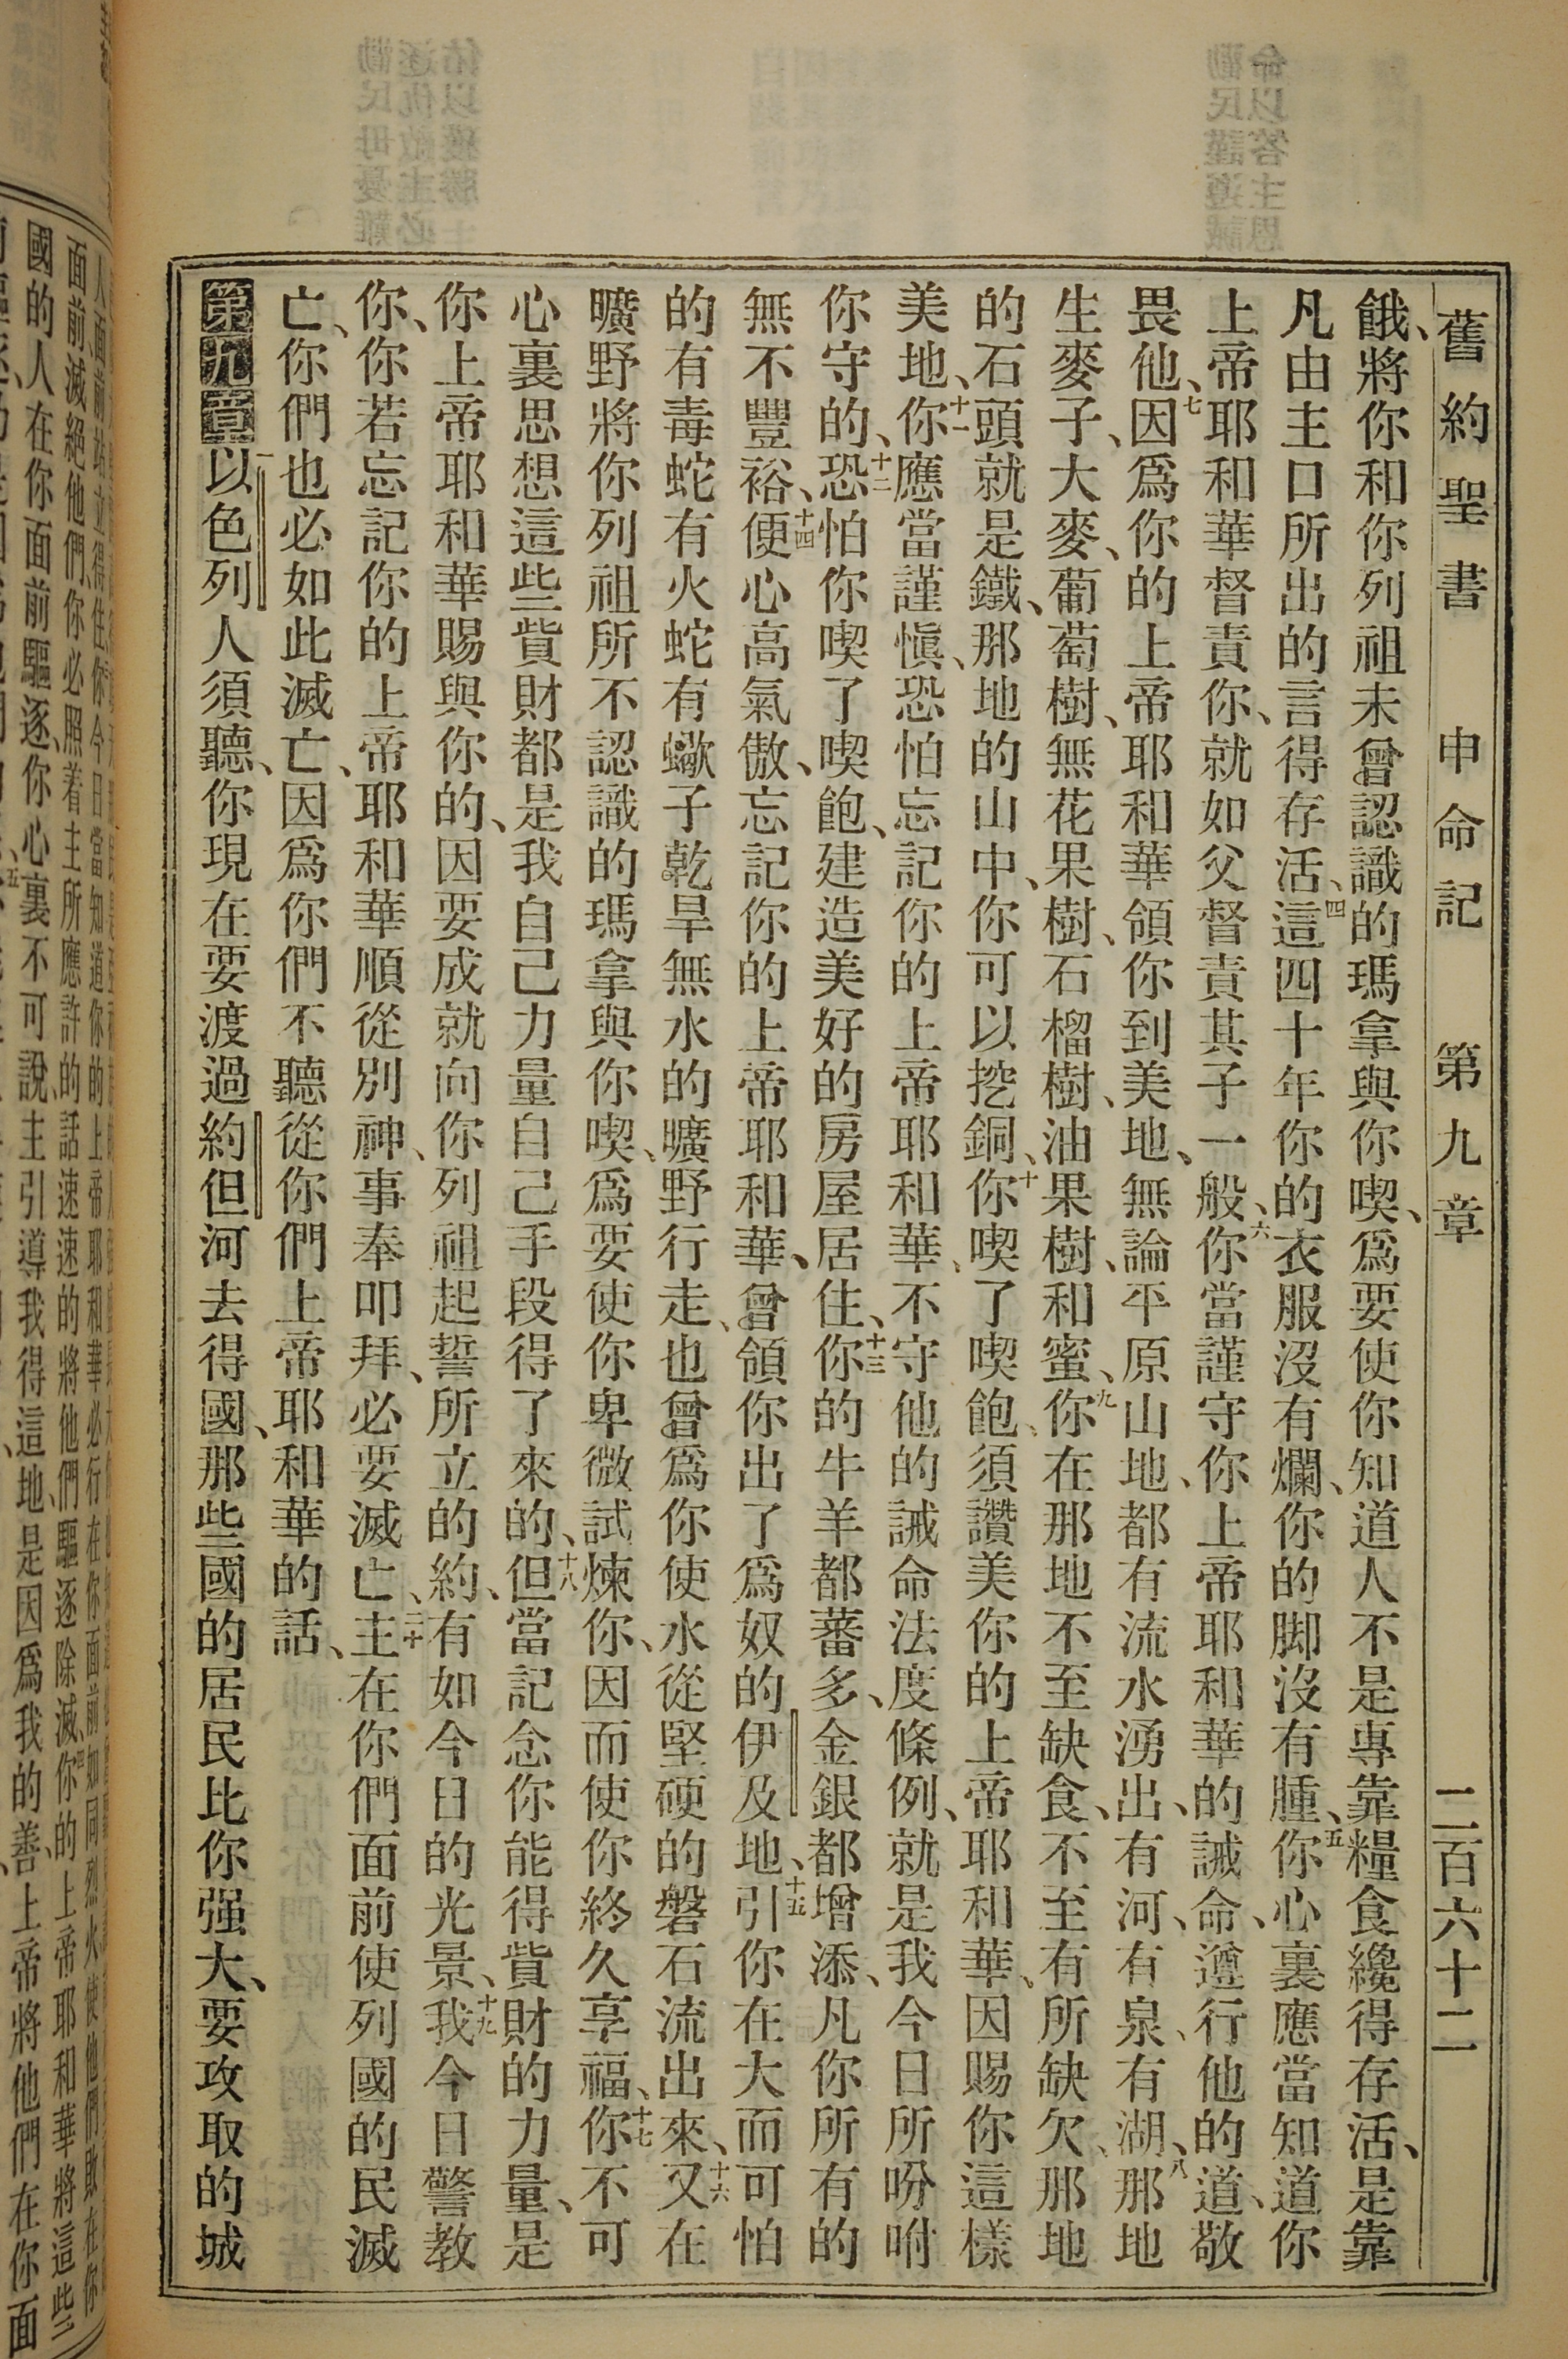 舊約聖書 申命記 第九章 二百六十二
餓、將你和你列祖未曾認識的瑪拿與你喫、爲要使你知道人不是專靠糧食纔得存活、是靠
凡由主口所出的言得存活、四這四十年你的衣服沒有爛、你的脚沒有腫、五你心裏應當知道你
上帝耶和華督責你、就如父督責其子一般、六你當謹守你上帝耶和華的誡命、遵行他的道、敬
畏他、七因爲你的上帝耶和華領你到美地、無論平原山地、都有流水湧出、有河、有泉、有湖、八那地
生麥子、大麥、葡萄樹、無花果樹、石榴樹、油果樹、和蜜、九你在那地不至缺食、不至有所缺欠、那地
的石頭就是鐵、那地的山中、你可以挖銅、十你喫了喫飽、須讚美你的上帝耶和華、因賜你這樣
美地、十一你應當謹愼、恐怕忘記你的上帝耶和華、不守他的誡命法度條例、就是我今日所吩咐
你守的、十二恐怕你喫了喫飽、建造美好的房屋居住、十三你的牛羊都蕃多、金銀都增添、凡你所有的
無不豐裕、十四便心高氣傲、忘記你的上帝耶和華、曾領你出了爲奴的伊及地、十五引你在大而可怕
的有毒蛇有火蛇有蠍子乾旱無水的曠野行走、也曾爲你使水從堅硬的磐石流出來、十六又在
曠野將你列祖所不認識的瑪拿與你喫、爲要使你卑微試煉你、因而使你終久享福、十七你不可
心裏思想這些貲財都是我自己力量自己手段得了來的、十八但當記念你能得貲財的力量、是
你上帝耶和華賜與你的、因要成就向你列祖起誓所立的約、有如今日的光景、十九我今日警教
你、你若忘記你的上帝耶和華順從別神、事奉叩拜、必要滅亡、二十主在你們面前使列國的民滅
亡、你們也必如此滅亡、因爲你們不聽從你們上帝耶和華的話、
第九章 一以色列人須聽、你現在要渡過約但河去得國、那些國的居民比你强大、要攻取的城
國的人在你面前驅逐、你心裏不可說主引導我得這地是因爲我的善、上帝將他們在你面